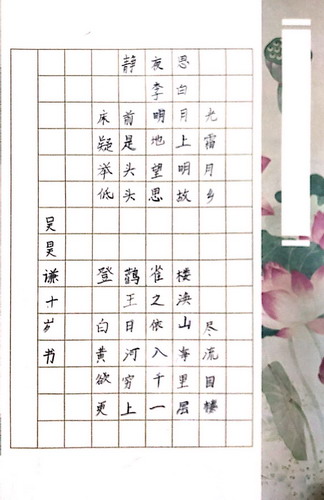 静夜思
李白
床前明月光
疑是地上霜
举头望明月
低头思故乡
登鹳雀楼
王之涣
白日依山尽
黄河入海流
欲穷千里目
更上一层楼
吴昊谦十岁书